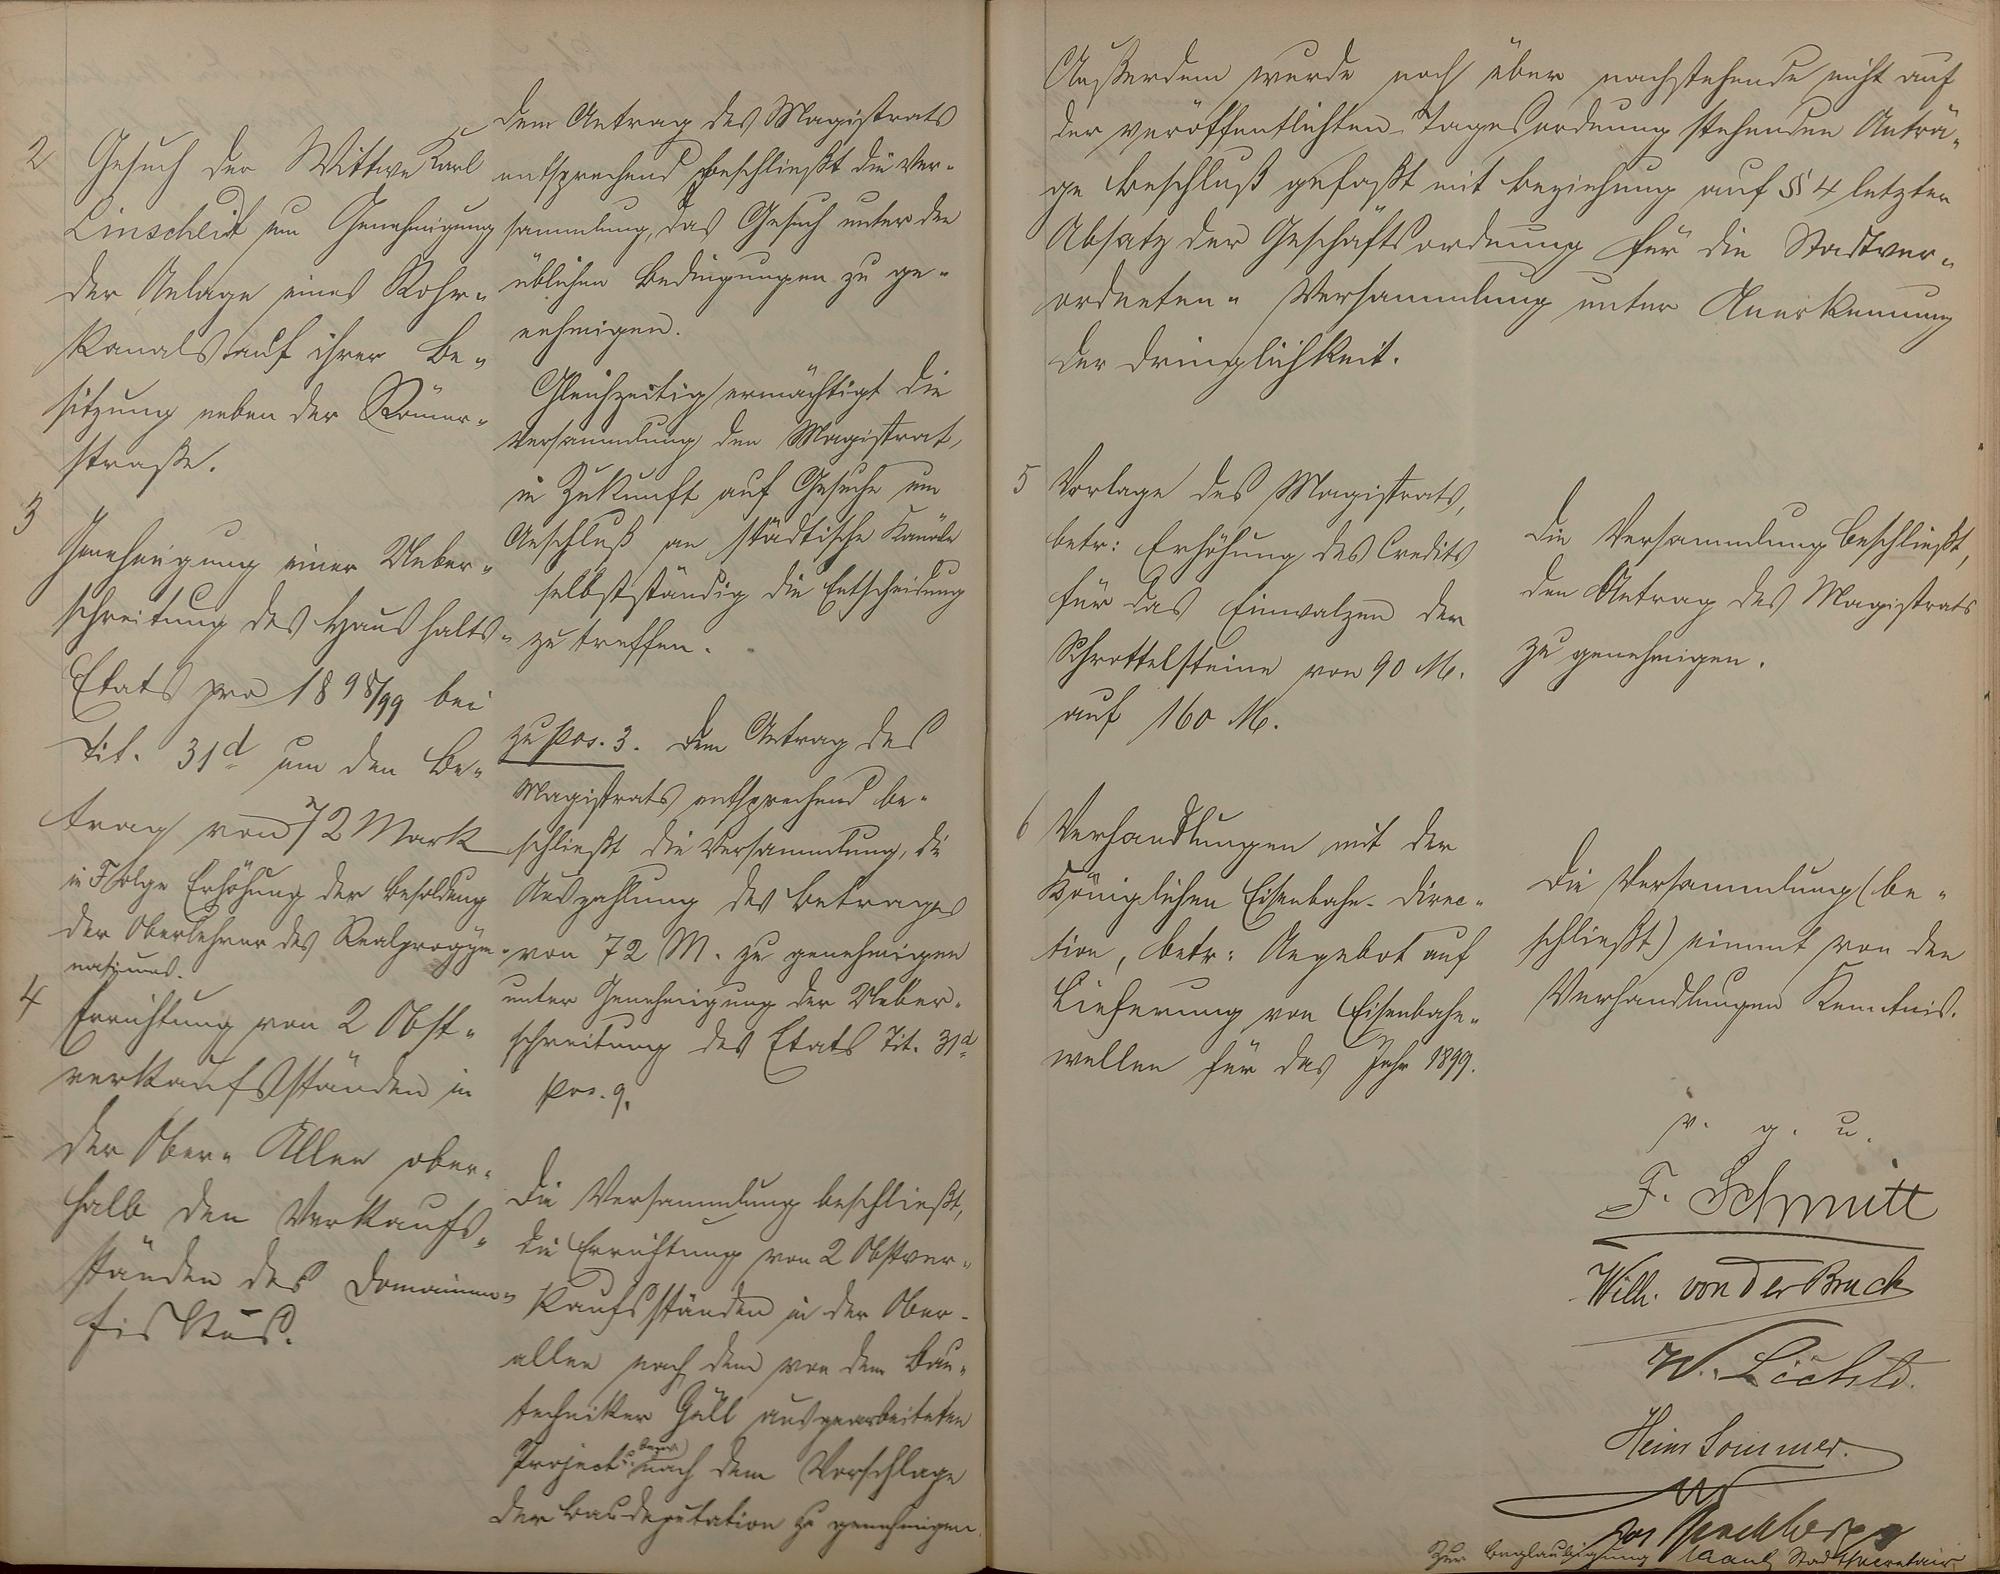 2 Gesuch der Wittwe Karl
Linscheid um Genehmigung
der Anlage eines Rohr-
kanals auf ihrer Be-
sitzung neben der Römer-
straße.
dem Antrag des Magistrats
entsprechend beschließt die Ver-
sammlung, das Gesuch unter den
üblichen Bedingungen zu ge-
nehmigen.
Gleichzeitig ermächtigt die
Versammlung den Magistrat,
in Zukunft auf Gesuche um
Anschluß an städtische Kanäle
selbstständig die Entscheidung
zu treffen.
3 Genehmigung einer Ueber-
schreitung des Haushalts-
Etats pro 1898/99 bei
Tit. 31d um den Be-
trag von 72 Mark
in Folge Erhöhung der Besoldung
der Oberlehrer des Realprogym-
nasiums.
zu Pos. 3. Dem Antrag des
Magistrats entsprechend be-
schließt die Versammlung, die
Auszahlung des Betrages
von 72 M. zu genehmigen
unter Genehmigung der Ueber-
schreitung des Etats Tit. 31d
pos. 9.
4 Errichtung von 2 Obst-
verkaufsständen in
der Ober-Allee ober-
halb den Verkaufs-
ständen des Domainen-
fiskus.
Die Versammlung beschließt,
die Errichtung von 2 Obstver-
kaufsständen in der Ober-
allee nach dem von dem Bau-
techniker Güll ausgearbeiteten
Project u. bezw. nach dem Vorschlage
der Baudeputation zu genehmigen.
Außerdem wurde noch über nachstehende nicht auf
der veröffentlichten Tagesordnung stehenden Anträ-
ge Beschluß gefaßt mit Beziehung auf § 4 letzter
Absatz der Geschäftsordnung für die Stadtver-
ordneten-Versammlung unter Anerkennung
der Dringlichkeit.
5 Vorlage des Magistrats,
betr: Erhöhung des Credits
für das Einwalzen der
Schrottelsteine von 90 M.
auf 160 M.
Die Versammlung beschließt,
den Antrag des Magistrats
zu genehmigen.
6 Verhandlungen mit der
Königlichen Eisenbahn-Direc-
tion, betr: Angebot auf
Lieferung von Eisenbahn-
wellen für das Jahr 1899.
Die Versammlung (be-
schließt) nimmt von den
Verhandlungen Kenntnis.
v. g. u.
F. Schmitt
Wilh. von der Bruck
W.
Heinr Sommer.
Jos
Zur Beglaubigung Stadtsecretair